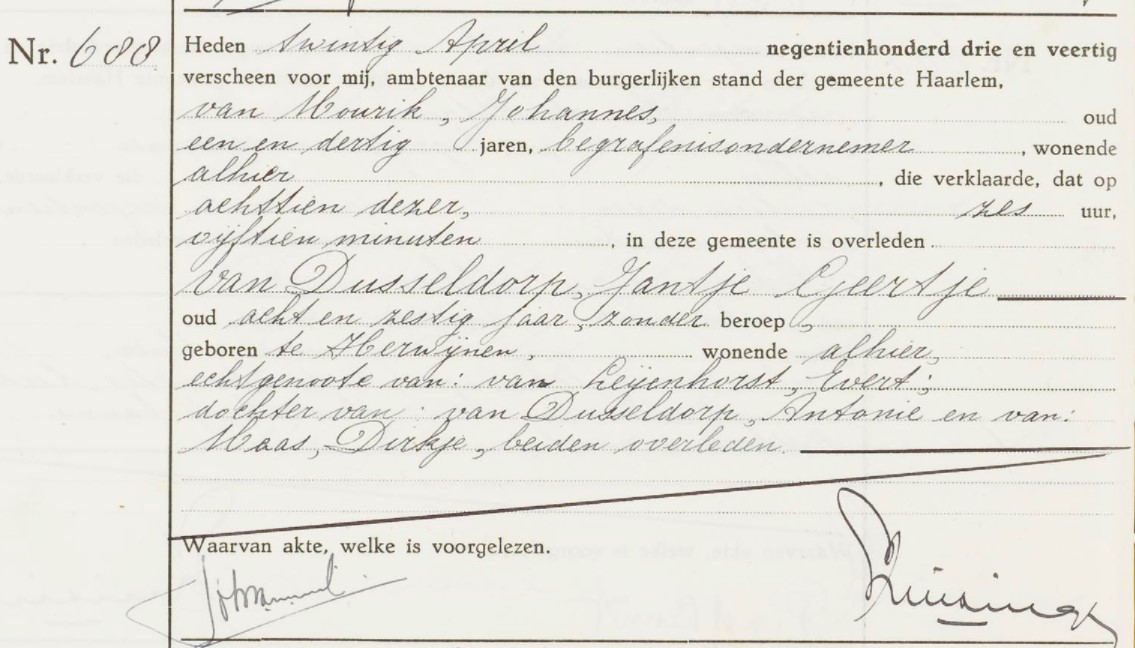 Nr. 688
Heden twintig April negentienhonderd drie en veertig
verscheen voor mij, ambtenaar van den burgerlijken stand der gemeente Haarlem,
van Mourik, Johannes, oud
een en dertig jaren, begrafenisondernemer, wonende
alhier, die verklaarde, dat op
achttien dezer, zes uur,
vijftien minuten, in deze gemeente is overleden
van Dusseldorp, Jantje Geertje
oud acht en zestig jaar, zonder beroep,
geboren te Herwijnen, wonende alhier,
echtgenoote van: van Leijenhorst, Evert;
dochter van: van Dusseldorp, Antonie en van:
Maas, Dirkje, beiden overleden.
Waarvan akte, welke is voorgelezen.